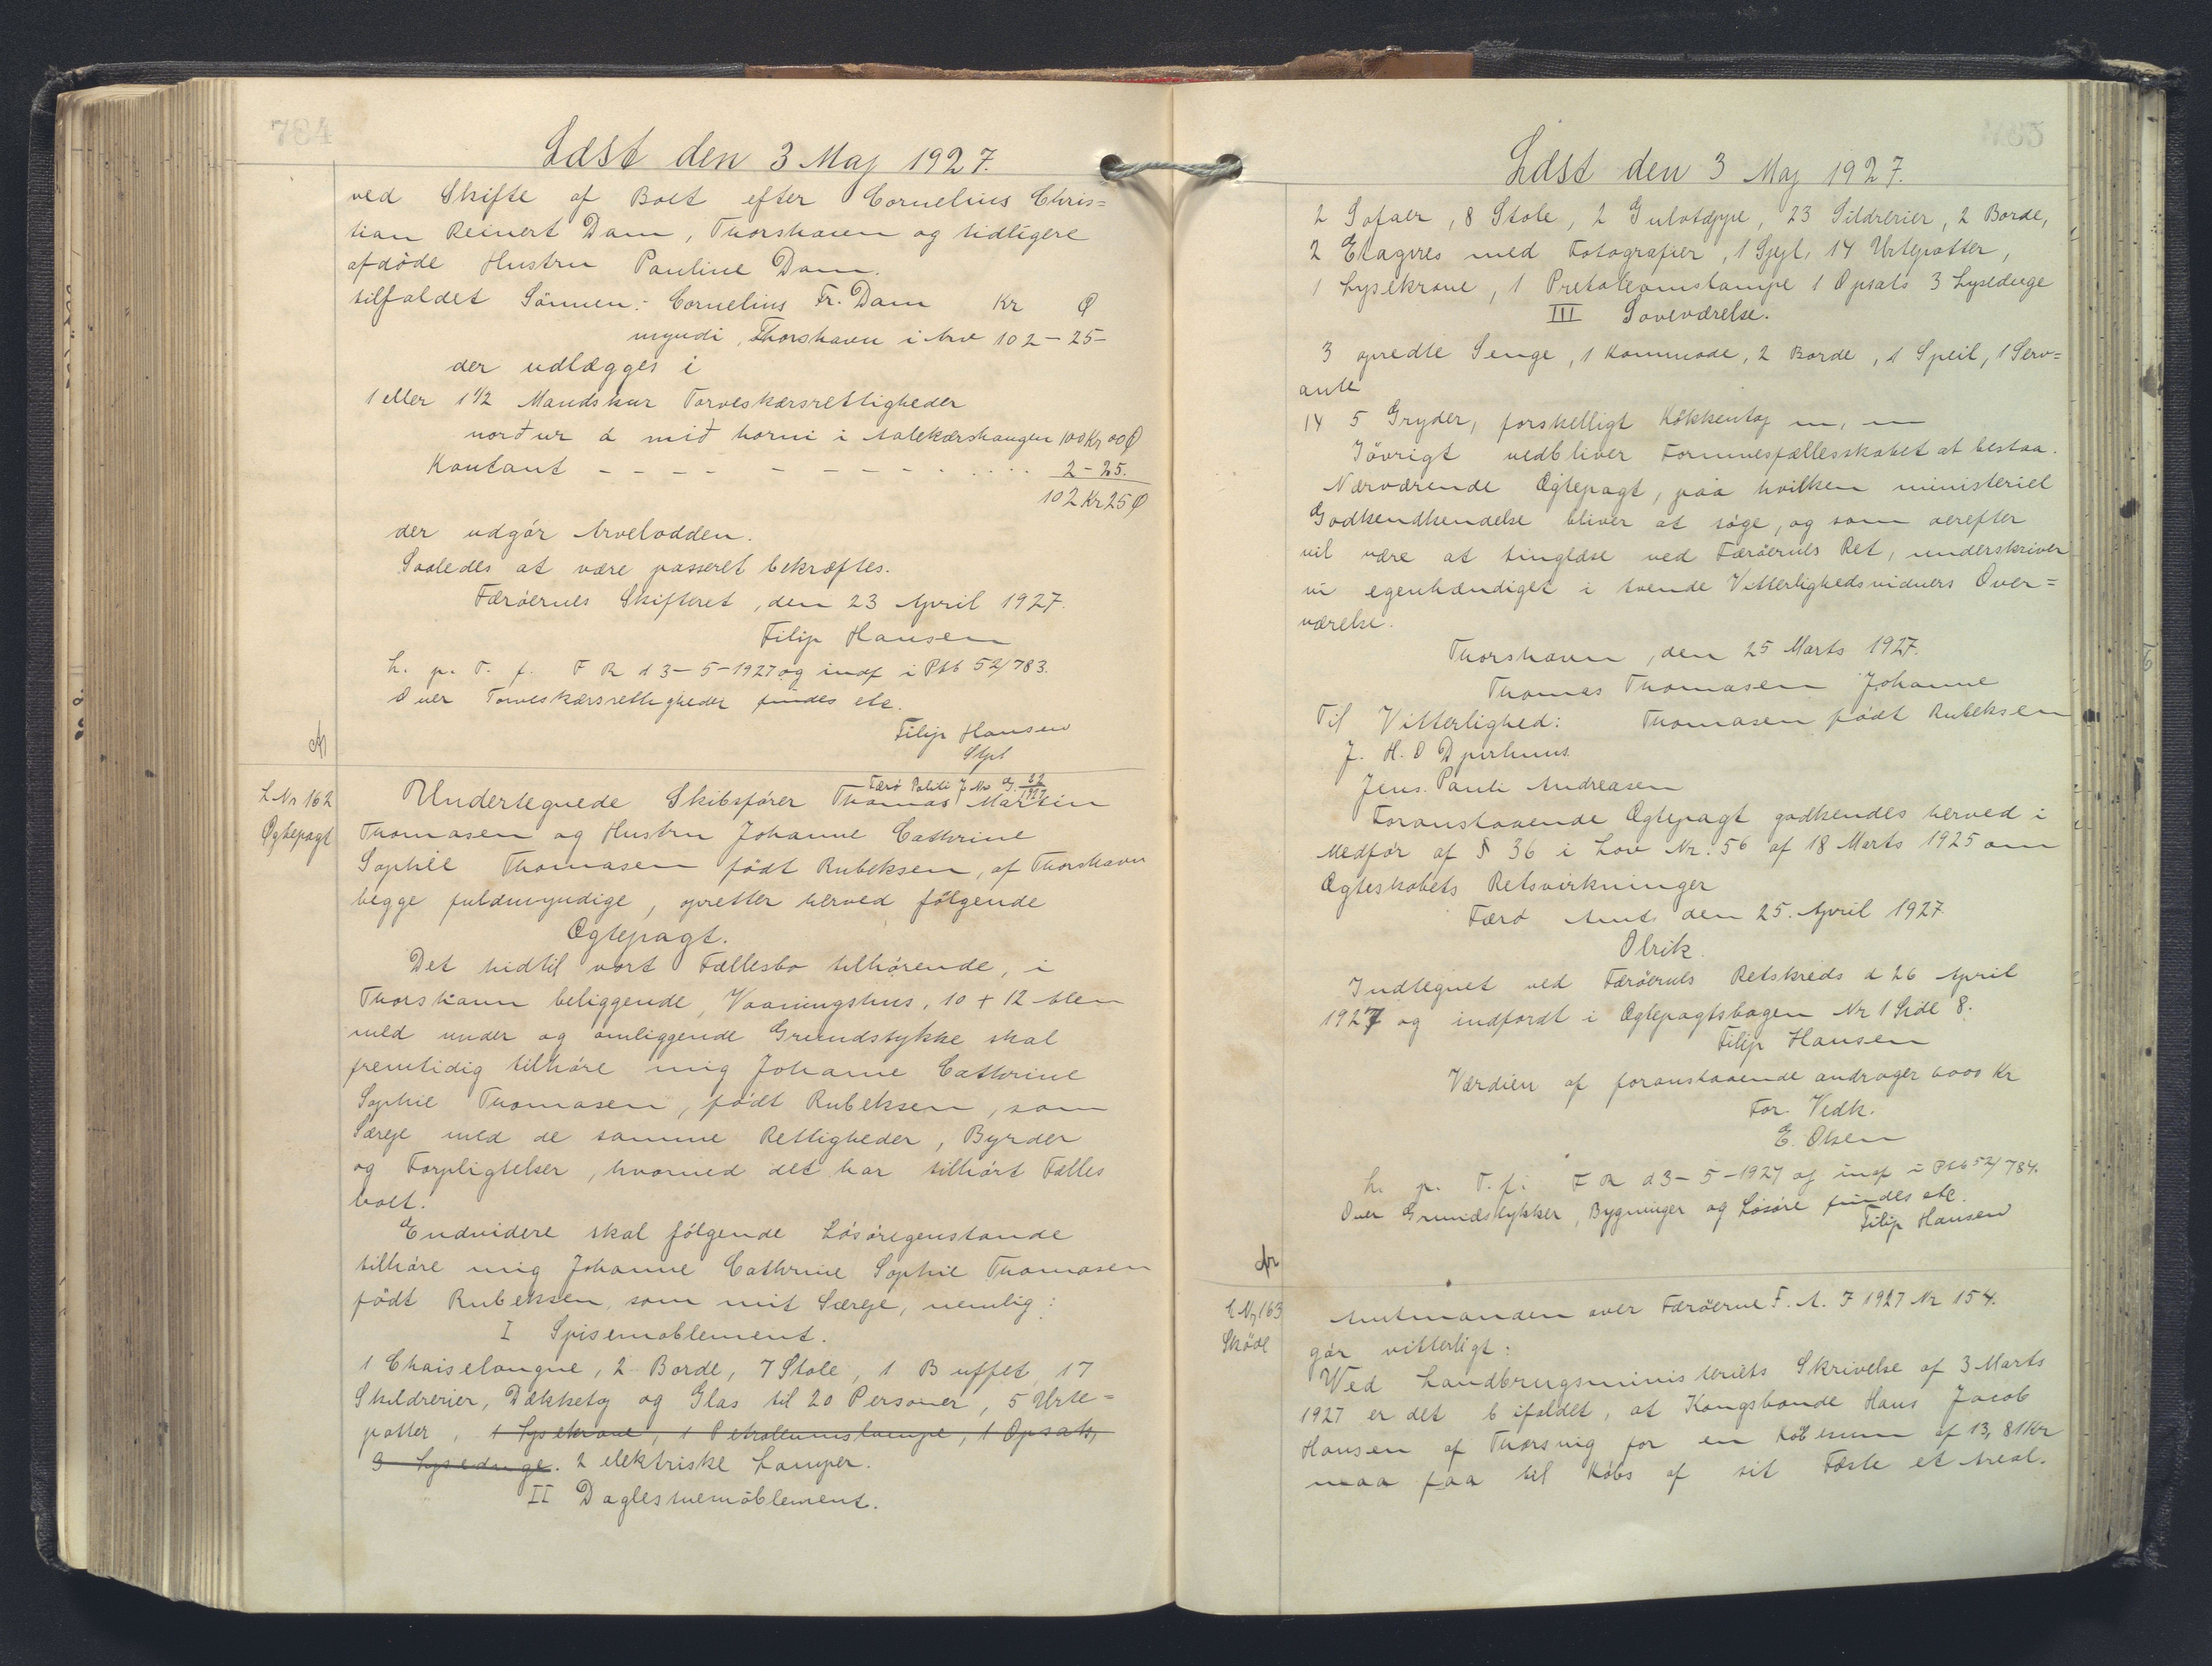 784
Læst den 3 Maj 1927.
ved Skifte af Boet efter Cornelius Chris=
tian Reinert Dam, Thorshavn og tidligere
afdöde Hustru Pauline Dam.
tilfaldet Sönnen: Cornelius Fr. Dam Kr Ø
myndi, Thorshavn i Arv 102-25-
der udlægges i
1 eller 1 1/2 Mandskur Torveskærsrettigheder
norður á mið horni i Aalekærshaugen 100 Kr 00 Ø
Kontant - - - - - - - - - 2-25.
102 Kr 25 Ø
der udgör Arvelodden.
Saaledes at være passeret bekræftes.
Færöernes Skifteret, den 23 April 1927.
Filip Hansen
L. p. T. f. F R d 3-5-1927 og indf i Ptb 52/783.
Over Torveskærsrettigheder findes etc.
Filip Hansen
Stpl
L Nr 162
Ægtepagt
Færö Politi J Nr
Undertegnede Skibsförer Thomas Martin
Thomasen og Hustru Johanne Cathrine
Sophie Thomasen födt Rubeksen, af Thorshavn
begge fuldmyndige, opretter herved fölgende
Ægtepagt.
Det hidtil vort Fællesbo tilhörende, i
Thorshavn beliggende, Vaaningshus, 10 + 12 Alen
med under og omliggende Grundstykke skal
fremtidig tilhöre mig Johanne Cathrine
Sophie Thomasen, födt Rubeksen, som
Særeje med de samme Rettigheder, Byrder
og Forpligtelser, hvormed det har tilhört Fælles
boet.
Endvidere skal fölgende Lösöregenstande
tilhöre mig Johanne Cathrine Sophie Thomasen
födt Rubeksen, som mit Særeje, nemlig:
I Spisemoblement.
1 Chaiselongue, 2 Borde, 7 Stole, 1 Buffet, 17
Skildrerier, Dækketöj og Glas til 20 Personer, 5 Urte=
potter, 1 Lysekrone, 1 Petroleumslampe, 1 Opsats,
3 Lyseduge. 2 elektriske Lamper.
II Daglestuemöblement.
Læst den 3 Maj 1927.
2 Sofaer, 8 Stole, 2 Gulvtæppe, 23 Sildrerier, 2 Borde,
2 Etageres med Fotografier, 1 Spejl, 14 Urtepotter,
1 Lysekrone, 1 Pretoleumslampe 1 Opsats 3 Lyseduge
III Soveværelse.
3 opredte Senge, 1 Kommode, 2 Borde, 1 Speil, 1 Serv=
ante
14 5 Gryder, forskelligt Kökkentöj m, m
Iövrigt vedbliver Formuesfællesskabet at bestaa.
Nærværende Ægtepagt, paa hvilken ministeriel
Godkendkendelse bliver at söge, og som derefter
vil være at tinglæse ved Færöernes Ret, underskriver
vi egenhændiget i tvende Vitterlighedsvidners Over=
værelse.
Thorshavn, den 25 Marts 1927.
Thomas Thomasen Johanne
Til Vitterlighed: Thomasen födt Rubeksen
J. H. O Djurhuus
Jens. Pauli Andreasen
Foranstaaende Ægtepagt godkendes herved i
Medför af § 36 i Lov Nr. 56 af 18 Marts 1925 om
Ægteskabets Retsvirkninger
Færö Amt, den 25. April 1927.
Olrik.
Indtegnet ved Færöernes Retskreds d 26 April
1927 og indfördt i Ægtepagtsbogen Nr 1 Side 8.
Filip Hansen
Værdien af foranstaaende andrager 6000 Kr
For Vedk.
E. Olsen
L. p. T. f. F R d 3-5-1927 og indf i Ptb 52/784.
Over Grundstykker, Bygninger og Lösöre findes etc.
Filip Hansen
L Nr 163
Sköde
Amtmanden over Færöerne F. A. J 1927 Nr 154.
gör vitterligt:
Ved Landbrugsministeriets Skrivelse af 3 Marts
1927 er det bifaldet, at Kongsbonde Hans Jacob
Hansen af Thorsvig for en Köbesum af 13,81 Kr
maa faa til Köbs af sit Fæste et Areal.